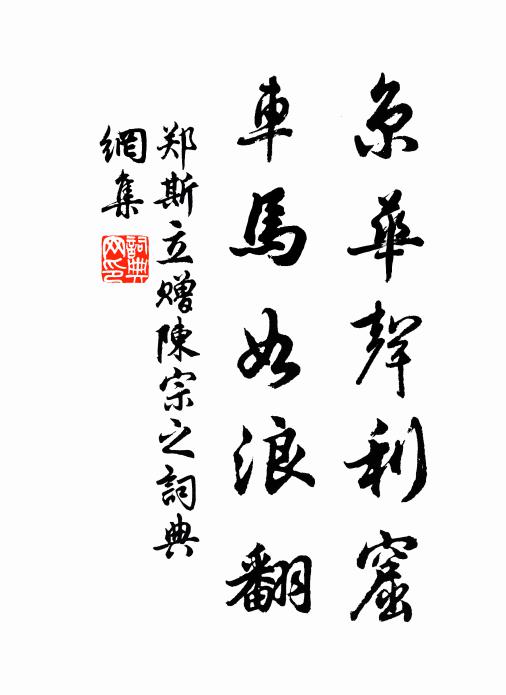 京華聲利窟
車馬如浪翻
郑斯立赠陳宗之詞典
網集
詞典網印